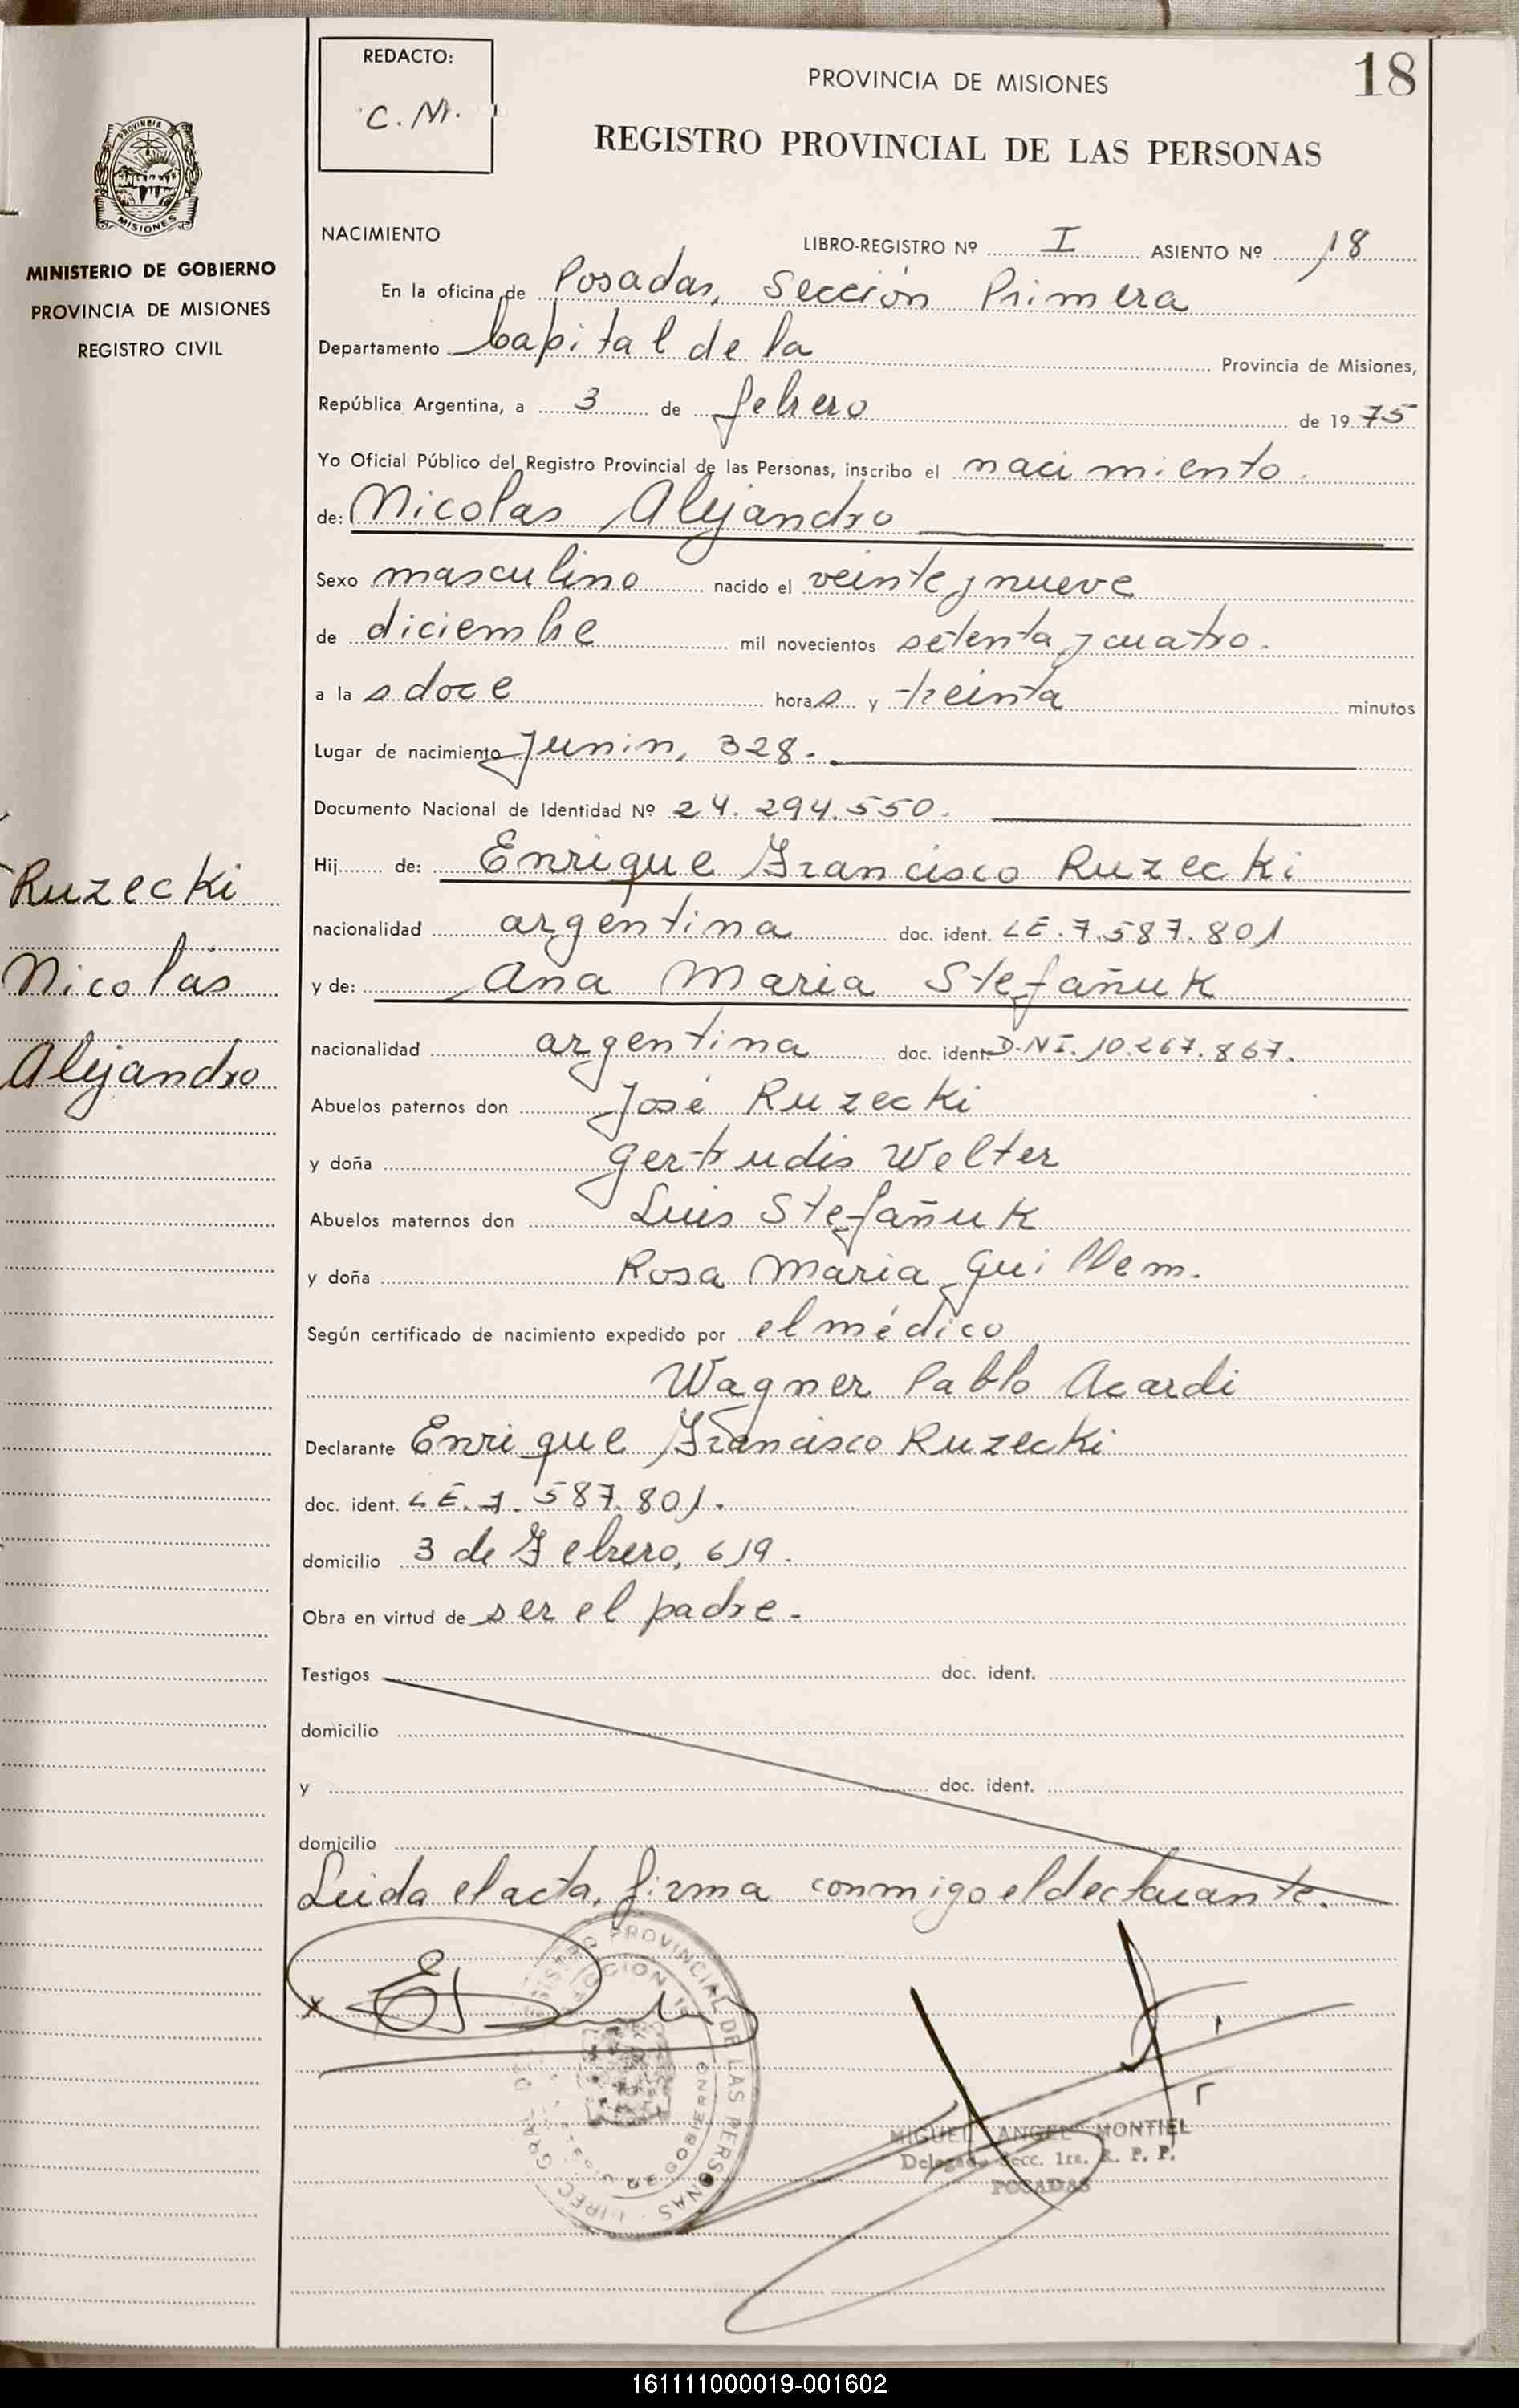 REDACTO:
C. M.
PROVINCIA DE MISIONES
18
REGISTRO PROVINCIAL DE LAS PERSONAS
PROVINCIA MISIONES
MINISTERIO DE GOBIERNO
PROVINCIA DE MISIONES
REGISTRO CIVIL
NACIMIENTO LIBRO-REGISTRO Nº I ASIENTO Nº 18
En la oficina de Posadas, Sección Primera
Departamento Capital de la Provincia de Misiones,
República Argentina, a 3 de febrero de 1975
Yo Oficial Público del Registro Provincial de las Personas, inscribo el nacimiento.
de: Nicolas Alejandro
Sexo masculino nacido el veinte y nueve
de diciembre mil novecientos setenta y cuatro.
a la s doce hora s y treinta minutos
Lugar de nacimiento Junin, 328.
Documento Nacional de Identidad Nº 24.294.550.
Hij de: Enrique Francisco Ruzecki
nacionalidad argentina doc. ident. LE. 7.587.801
y de: Ana Maria Stefañuk
nacionalidad argentina doc. ident. D.NI. 10.267.867.
Abuelos paternos don José Ruzecki
y doña Gertrudis Welter
Abuelos maternos don Luis Stefañuk
y doña Rosa Maria Guillem.
Según certificado de nacimiento expedido por el médico
Wagner Pablo Acardi
Declarante Enrique Francisco Ruzecki
doc. ident. LE. 7.587.801.
domicilio 3 de Febrero, 619.
Obra en virtud de ser el padre.
Testigos doc. ident.
domicilio
y doc. ident.
domicilio
Leida el acta, firma conmigo el declarante.
Ruzecki
Nicolás
Alejandro
REGISTRO PROVINCIAL DE LAS PERSONAS
MIGUEL ANGEL MONTIEL
Delegado Secc. 1ra. R. P. P.
POSADAS
161111000019-001602